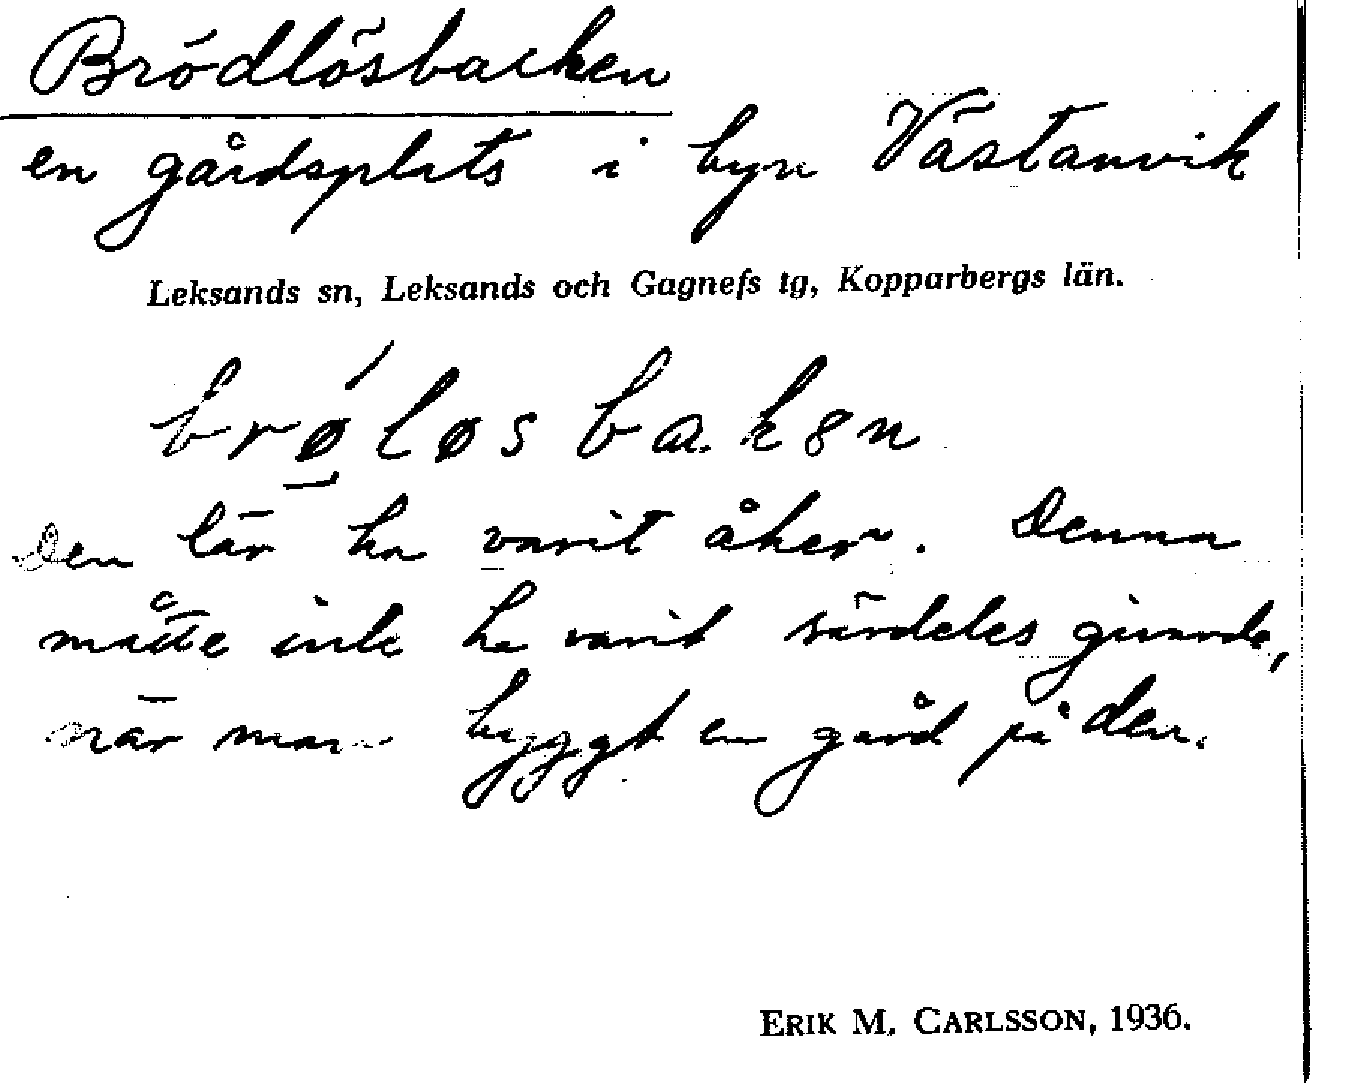 Brödlösbacken
en gårdsplats i byn Västanvik
Leksands sn, Leksands och Gagnefs tg, Kopparbergs län.
brǿløsbakən
Den lär ha varit åker. Denna
måtte inte ha varit särdeles givande,
när man byggt en gård på den.
ERIK M. CARLSSON, 1936.